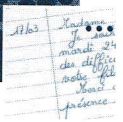 17/03
Madame
Je
mardi 24
des diffic
votre fille
Merci
présence